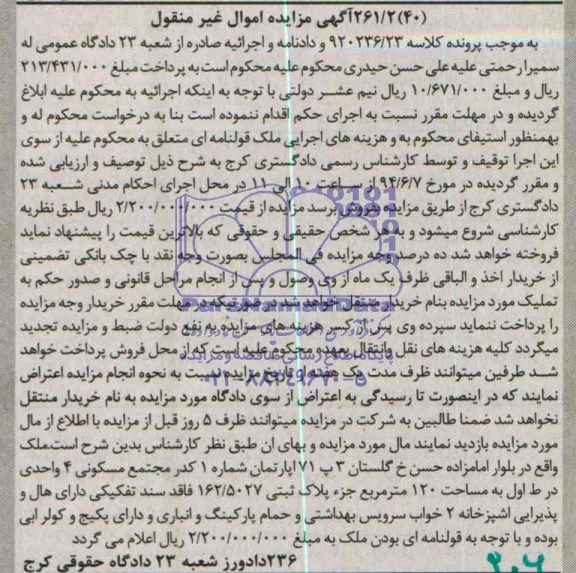 ۲۶۱/۲(۴۰)آگهی مزایده اموال غیر منقول
به موجب پرونده کلاسه ۹۲۰۲۳۶/۲۳ و دادنامه و اجرائیه صادره از شعبه ۲۳ دادگاه عمومی له
سمیرا رحمتی علیه علی حسن حیدری محکوم علیه محکوم است به پرداخت مبلغ ۲۱۳/۴۳۱/۰۰۰
ریال و مبلغ ۱۰/۶۷۱/۰۰۰ ریال نیم عشر دولتی با توجه به اینکه اجرائیه به محکوم علیه ابلاغ
گردیده و در مهلت مقرر نسبت به اجرای حکم اقدام ننموده است بنا به درخواست محکوم له و
بهمنظور استیفای محکوم به و هزینه های اجرایی ملک قولنامه ای متعلق به محکوم علیه از سوی
این اجرا توقیف و توسط کارشناس رسمی دادگستری کرج به شرح ذیل توصیف و ارزیابی شده
و مقرر گردیده در مورخ ۹۴/۶/۷ از ساعت ۱۰ الی ۱۱ در محل اجرای احکام مدنی شعبه ۲۳
دادگستری کرج از طریق مزایده بفروش برسد مزایده از قیمت ۲/۲۰۰/۰۰۰/۰۰۰ ریال طبق نظریه
کارشناسی شروع میشود و به هر شخص حقیقی و حقوقی که بالاترین قیمت را پیشنهاد نماید
فروخته خواهد شد ده درصد وجه مزایده فی المجلس بصورت وجه نقد یا چک بانکی تضمینی
از خریدار اخذ و الباقی ظرف یک ماه از وی وصول و پس از انجام مراحل قانونی و صدور حکم به
تملیک مورد مزایده بنام خریدار منتقل خواهد شد در صورتیکه در مهلت مقرر خریدار وجه مزایده
را پرداخت ننماید سپرده وی پس از کسر هزینه های مزایده به نفع دولت ضبط و مزایده تجدید
میگردد کلیه هزینه های نقل وانتقال بعهده محکوم علیه است که از محل فروش پرداخت خواهد
شد طرفین میتوانند ظرف مدت یک هفته از تاریخ مزایده نسبت به نحوه انجام مزایده اعتراض
نمایند که در اینصورت تا رسیدگی به اعتراض از سوی دادگاه مورد مزایده به نام خریدار منتقل
نخواهد شد ضمنا طالبین به شرکت در مزایده میتوانند ظرف ۵ روز قبل از مزایده با اطلاع از مال
مورد مزایده بازدید نمایند مال مورد مزایده و بهای ان طبق نظر کارشناس بدین شرح است.ملک
واقع در بلوار امامزاده حسن خ گلستان ۳ پ ۷۱ اپارتمان شماره ۱ کدر مجتمع مسکونی ۴ واحدی
در ط اول به مساحت ۱۲۰ مترمربع جزء پلاک ثبتی ۱۶۲/۵۰۲۷ فاقد سند تفکیکی دارای هال و
پذیرایی اشپزخانه ۲ خواب سرویس بهداشتی و حمام پارکینگ و انباری و دارای پکیج و کولر ابی
بوده و با توجه به قولنامه ای بودن ملک به مبلغ ۲/۲۰۰/۰۰۰/۰۰۰ ریال اعلام می گردد
۲۳۶دادورز شعبه ۲۳ دادگاه حقوقی کرج
ParsNamadData
پایگاه اطلاع رسانی مناقصه و مزایده
۰۲۱-۸۸۳۴۹۶۷۰-۵